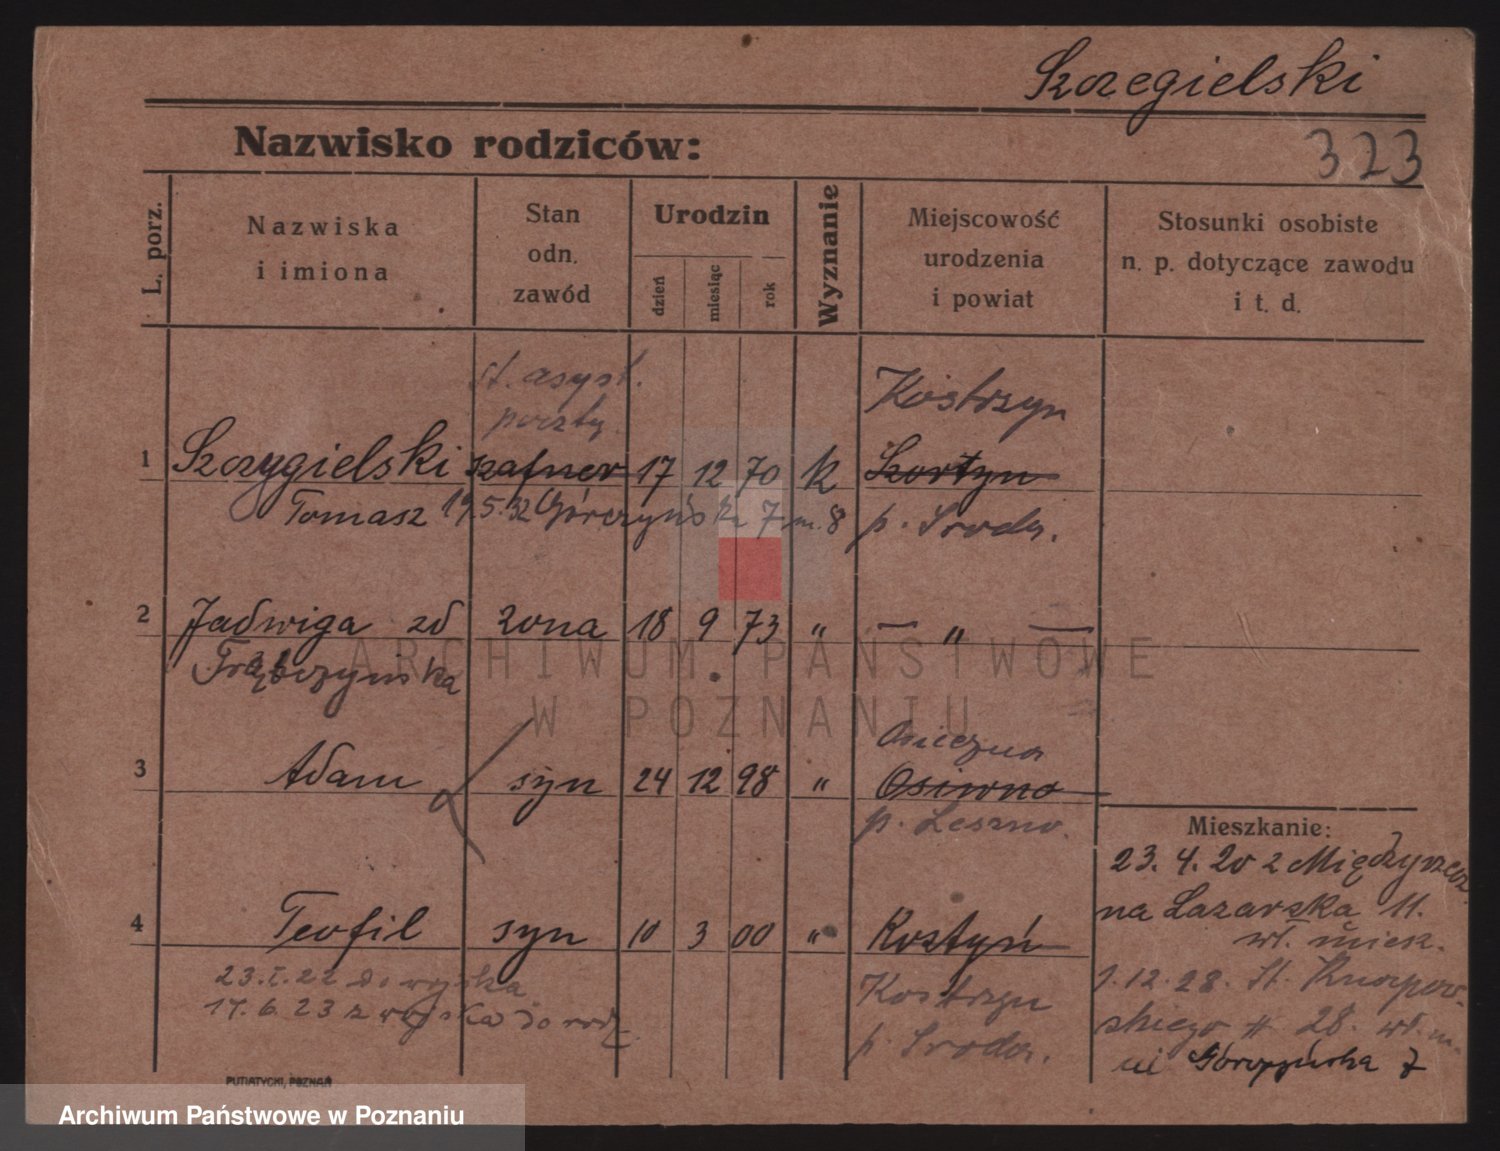 Szczegielski
323
Nazwisko rodziców:
L. porz.
Nazwiska
i imiona
Stan
odn.
zawód
Urodzin
dzień
miesiąc
rok
Wyznanie
Miejscowość
urodzenia
i powiat
Stosunki osobiste
n. p. dotyczące zawodu
i t. d.
st. asyst.
poczty
Kostrzyn
1 Szczygielski szafner 17 12 70 k
Tomasz 19.5.32 Górczyńska 7 m. 8 p. Środa.
2 Jadwiga zd żona 18 9 73 " — " —
Trąbczyńska
ARCHIWUM PAŃSTWOWE
W POZNANIU
Osieczna
3 Adam syn 24 12 98 " Osiwno
p. Leszno.
Mieszkanie:
23. 4. 20 z Międzyrzecz
na Lazarska 11.
wł. miesz.
4 Teofil syn 10 3 00 " Kostyń
23.I.22 do wojska
17.6.23 z wojska do rodz.
Kostrzyn
p. Środa.
1.12.28. St. Knapow-
skiego # 28. wł. m.
ul Górczyńska 7
PUTIATYCKI, POZNAŃ
Archiwum Państwowe w Poznaniu